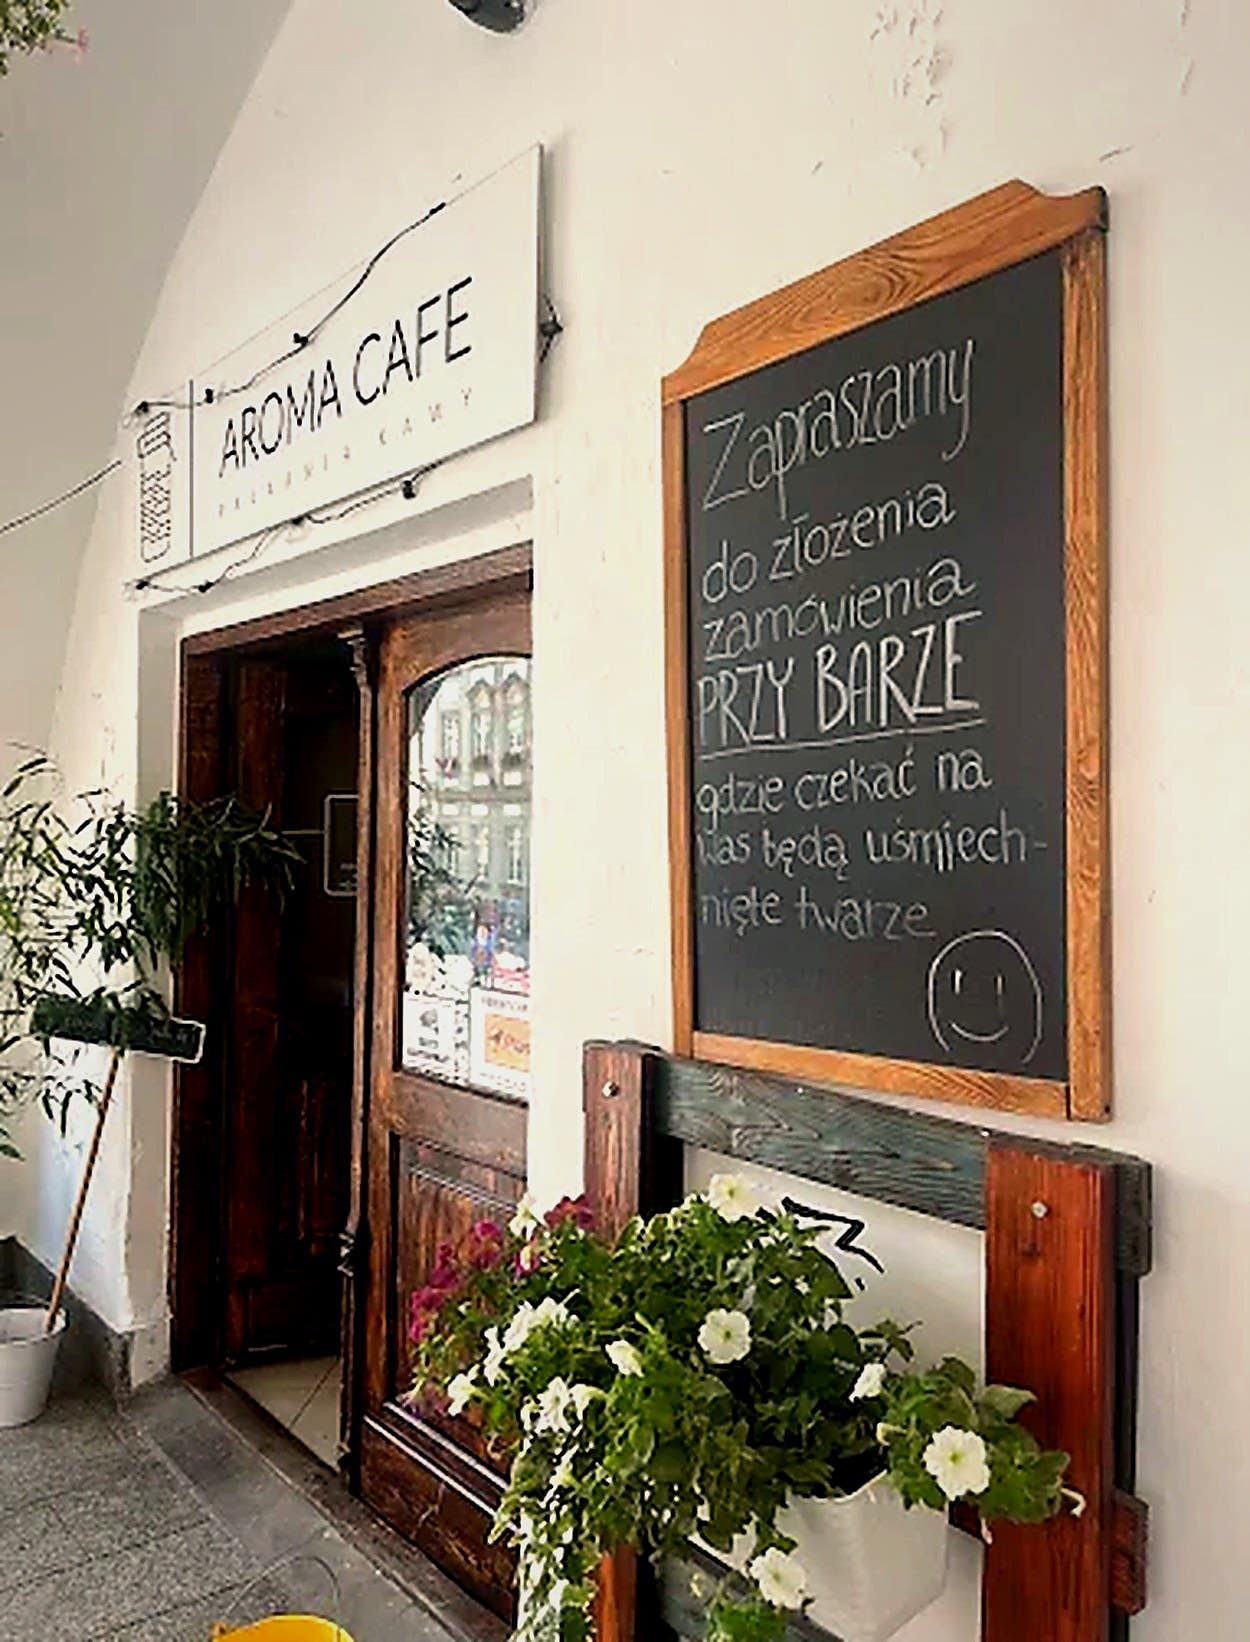 AROMA CAFE
PALARNIA KAWY
Zapraszamy
do złożenia
zamówienia
PRZY BARZE
gdzie czekać na
was będą uśmiech-
nięte twarze